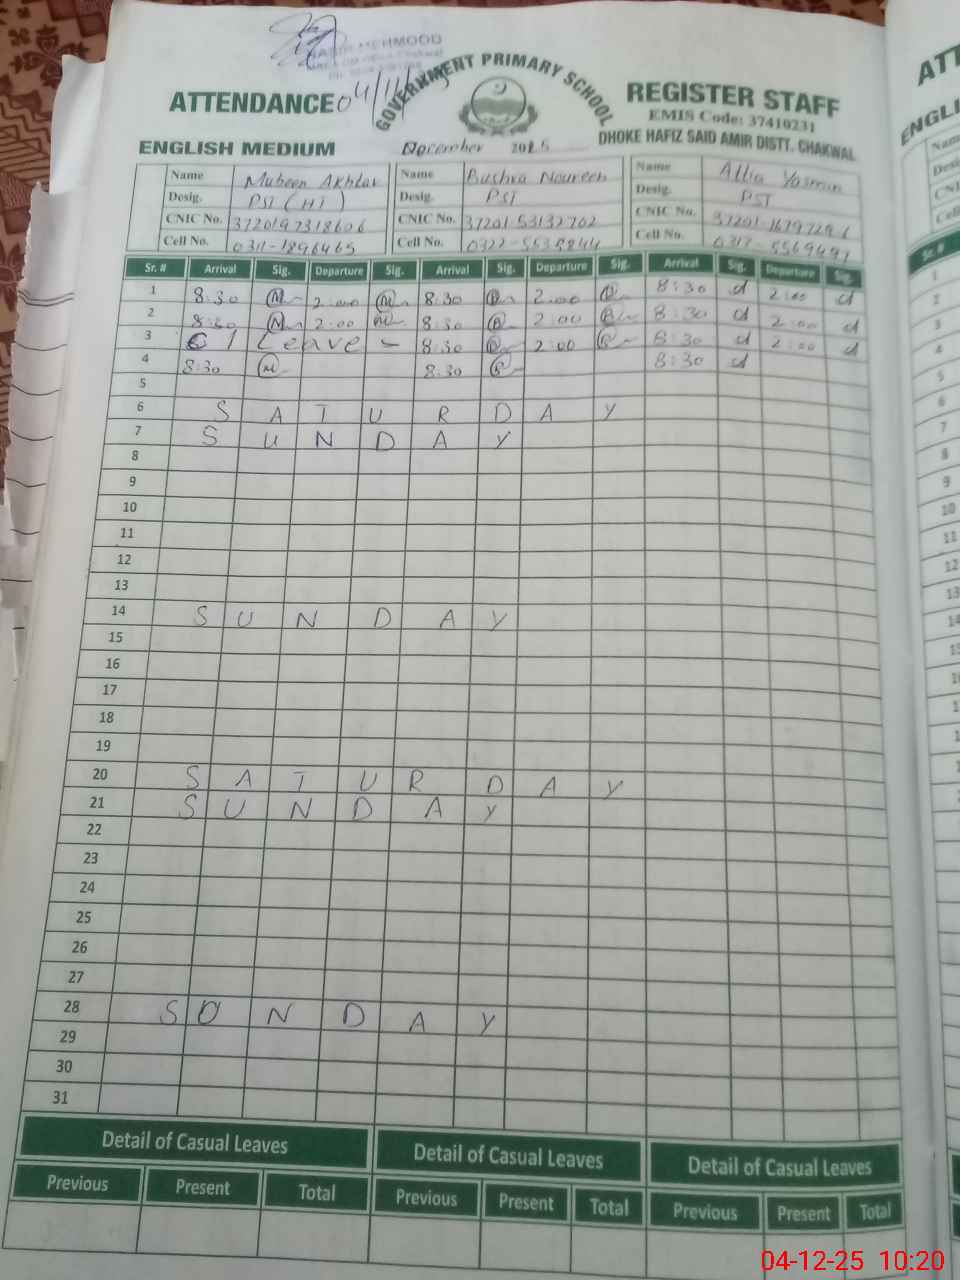 MEHMOOD
ATTENDANCE 04/11/
GOVERNMENT PRIMARY SCHOOL
REGISTER STAFF
EMIS Code: 37410231
ENGLISH MEDIUM
December 2025
DHOKE HAFIZ SAID AMIR DISTT. CHAKWAL
Name Mubeen Akhtar Name Bushra Noureen Name Attia Yasmin
Desig. PST (HT) Desig. PST Desig. PST
CNIC No. 3720197318606 CNIC No. 37201-53132702 CNIC No.
Cell No. 0311-1896465 Cell No. Cell No. 0317-5569497
Sr. # Arrival Sig. Departure Sig. Arrival Sig. Departure Sig. Arrival Sig. Departure Sig.
1 8:30 2:00 8:30 2:00 8:30 2:00
2 8:30 2:00 8:30 2:00 8:30 2:00
3 C / Leave - 8:30 2:00 8:30 2:00
4 8:30 8:30 8:30
5
6 S A T U R D A Y
7 S U N D A Y
8
9
10
11
12
13
14 S U N D A Y
15
16
17
18
19
20 S A T U R D A Y
21 S U N D A Y
22
23
24
25
26
27
28 S U N D A Y
29
30
31
Detail of Casual Leaves Detail of Casual Leaves Detail of Casual Leaves
Previous Present Total Previous Present Total Previous Present Total
04-12-25 10:20